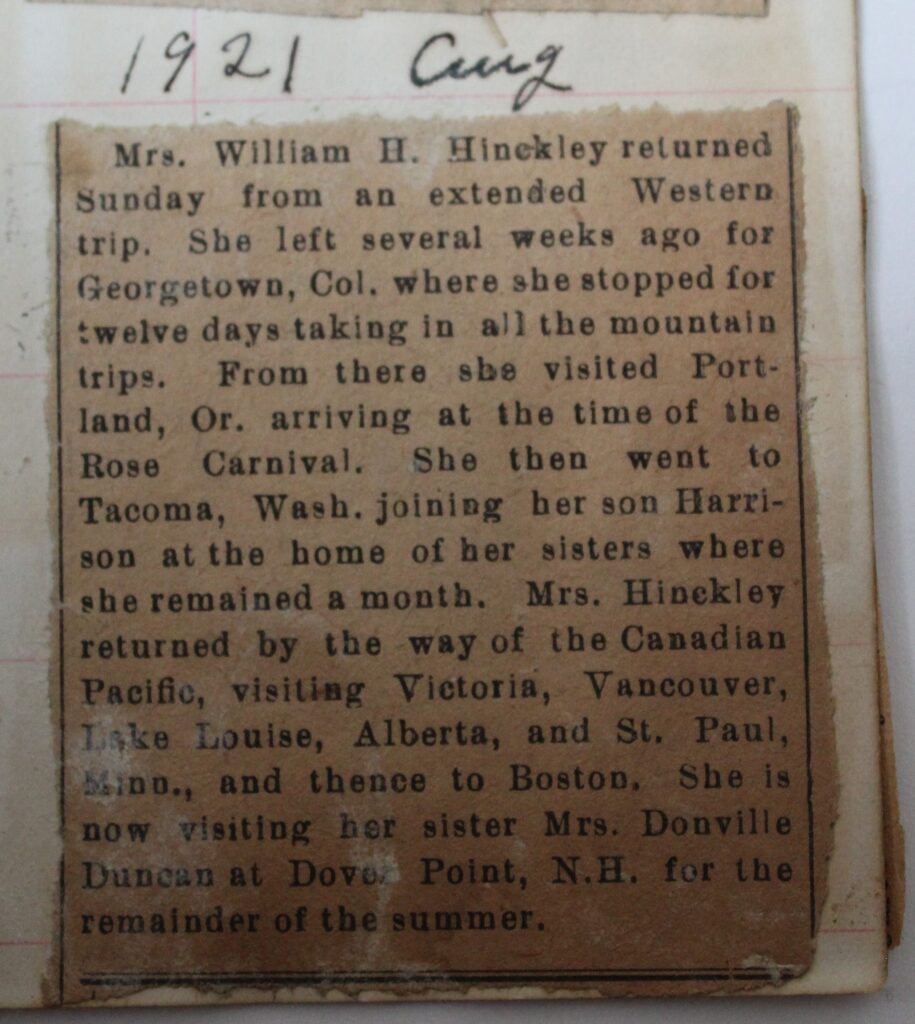 1921 Aug
Mrs. William H. Hinckley returned
Sunday from an extended Western
trip. She left several weeks ago for
Georgetown, Col. where she stopped for
twelve days taking in all the mountain
trips. From there she visited Port-
land, Or. arriving at the time of the
Rose Carnival. She then went to
Tacoma, Wash. joining her son Harri-
son at the home of her sisters where
she remained a month. Mrs. Hinckley
returned by the way of the Canadian
Pacific, visiting Victoria, Vancouver,
Lake Louise, Alberta, and St. Paul,
Minn., and thence to Boston. She is
now visiting her sister Mrs. Donville
Duncan at Dover Point, N.H. for the
remainder of the summer.